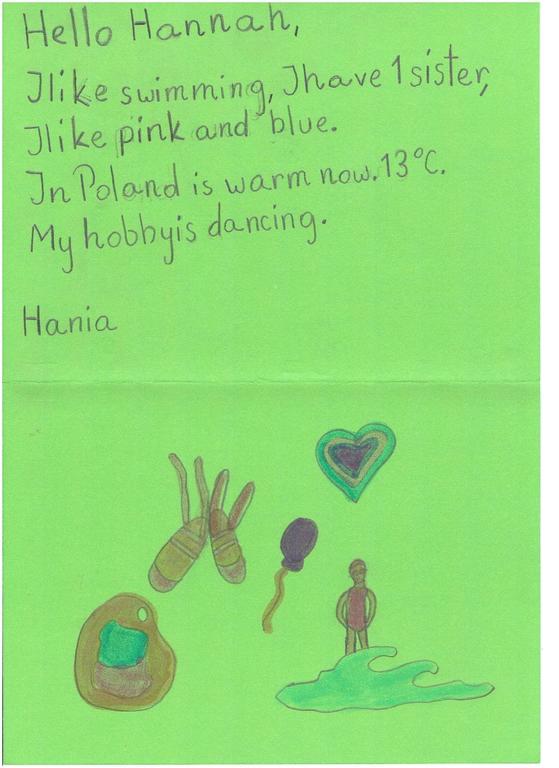 Hello Hannah,
I like swimming, I have 1 sister,
I like pink and blue.
In Poland is warm now. 13°C.
My hobby is dancing.
Hania